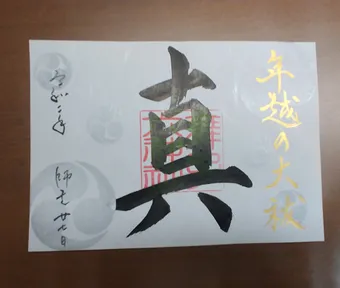 年越の大祓
真
令和二年
師走廿七日